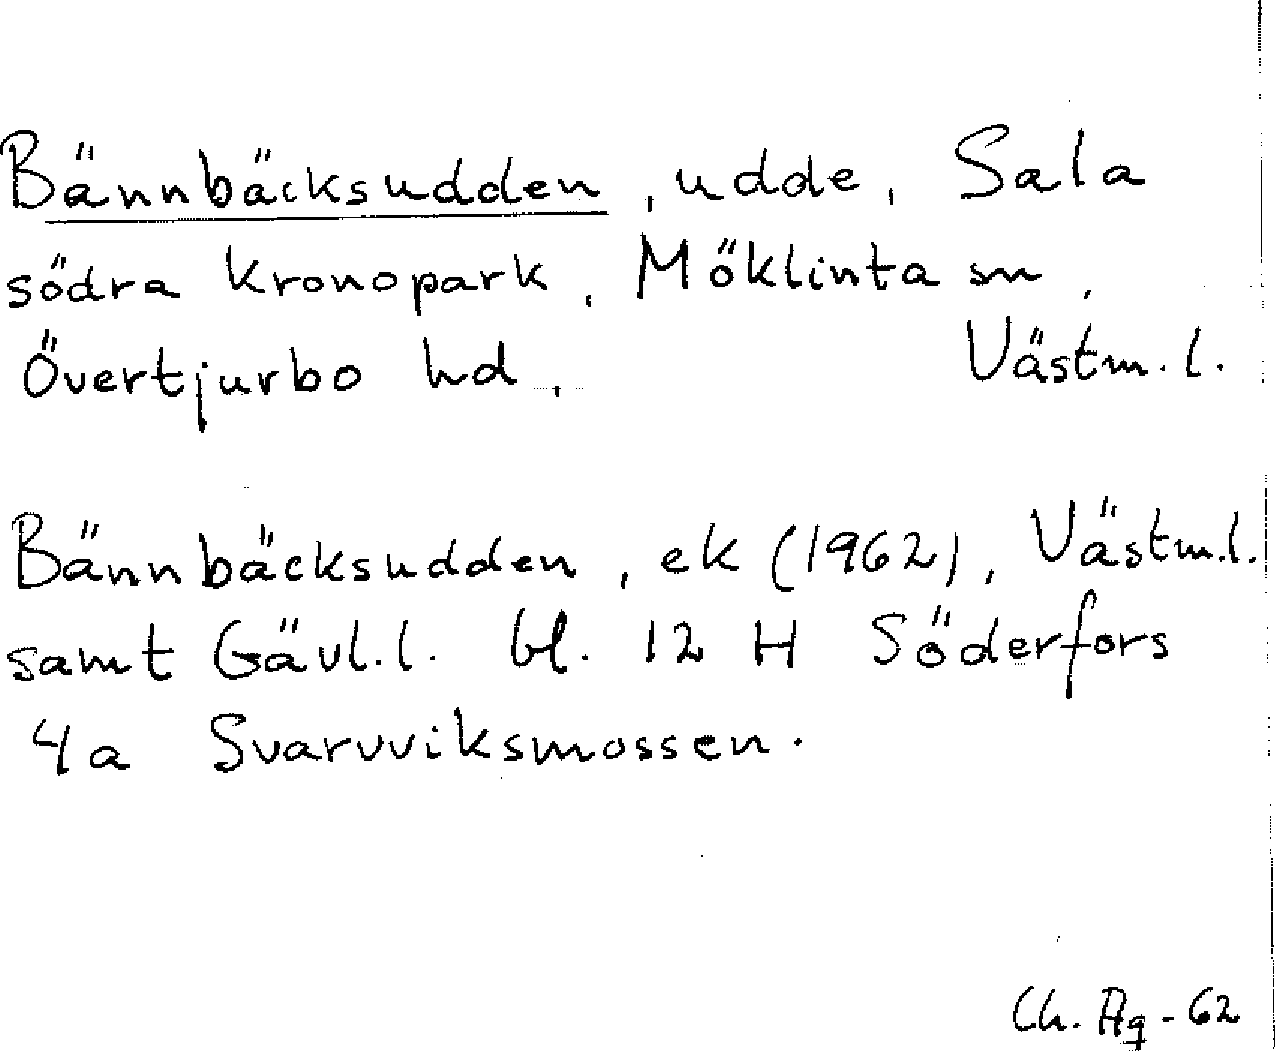 Bännbäcksudden, udde, Sala
södra kronopark, Möklinta sn,
Övertjurbo hd, Västm.l.
Bännbäcksudden, ek (1962), Västm.l.
samt Gävl.l. bl. 12 H Söderfors
4a Svarvviksmossen.
Ch. Ag - 62